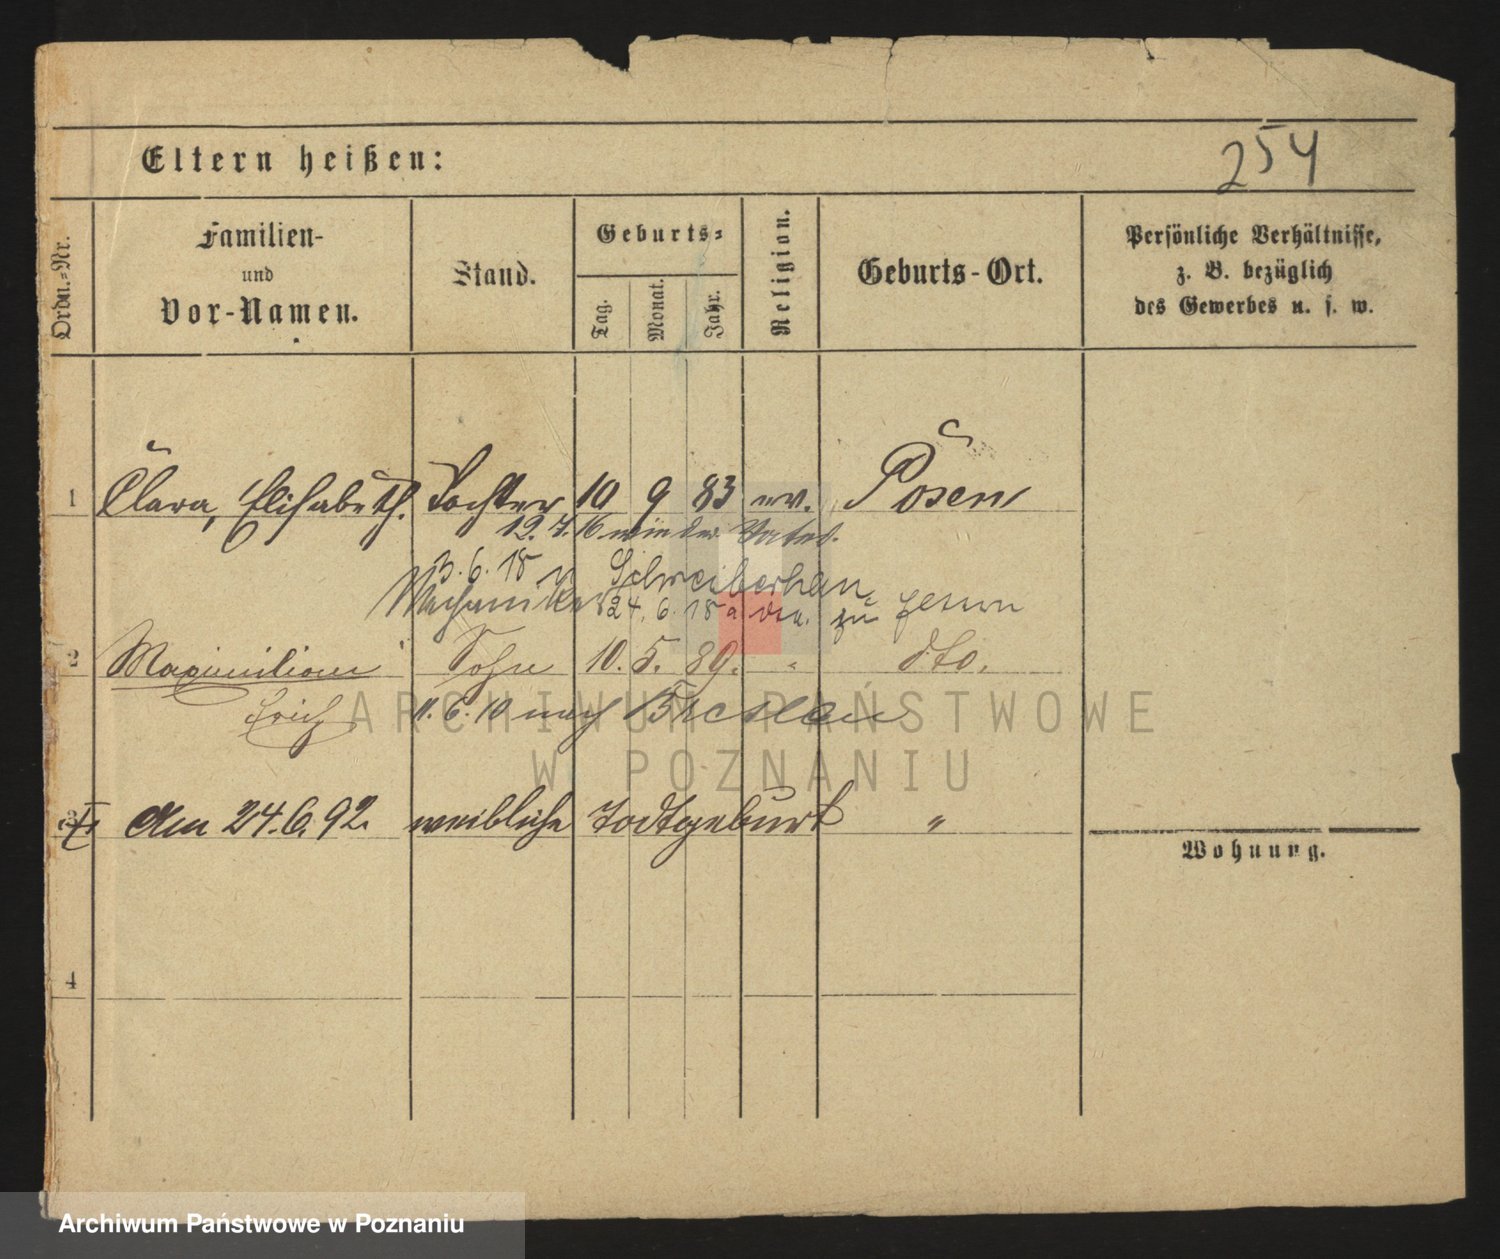 254
Eltern heißen:
Ordn.-Nr.
Familien-
und
Vor-Namen.
Stand.
Geburts-
Tag.
Monat.
Jahr.
Religion.
Geburts-Ort.
Persönliche Verhältnisse,
z. B. bezüglich
des Gewerbes u. s. w.
1 Clara, Elisabeth. Tochter 10 9 83 ev. Posen
12. 7. 16 wieder Vater.
3. 6. 18 n Schreiberhau
24. 6. 18 zu
2 Maximilian Sohn 10. 5. 89. " dto.
Mechaniker
Erich 11. 6. 10 nach Breslau
3 am 24. 6. 92. weibliche Todtgeburt "
Wohnung.
4
ARCHIWUM PAŃSTWOWE
W POZNANIU
Archiwum Państwowe w Poznaniu